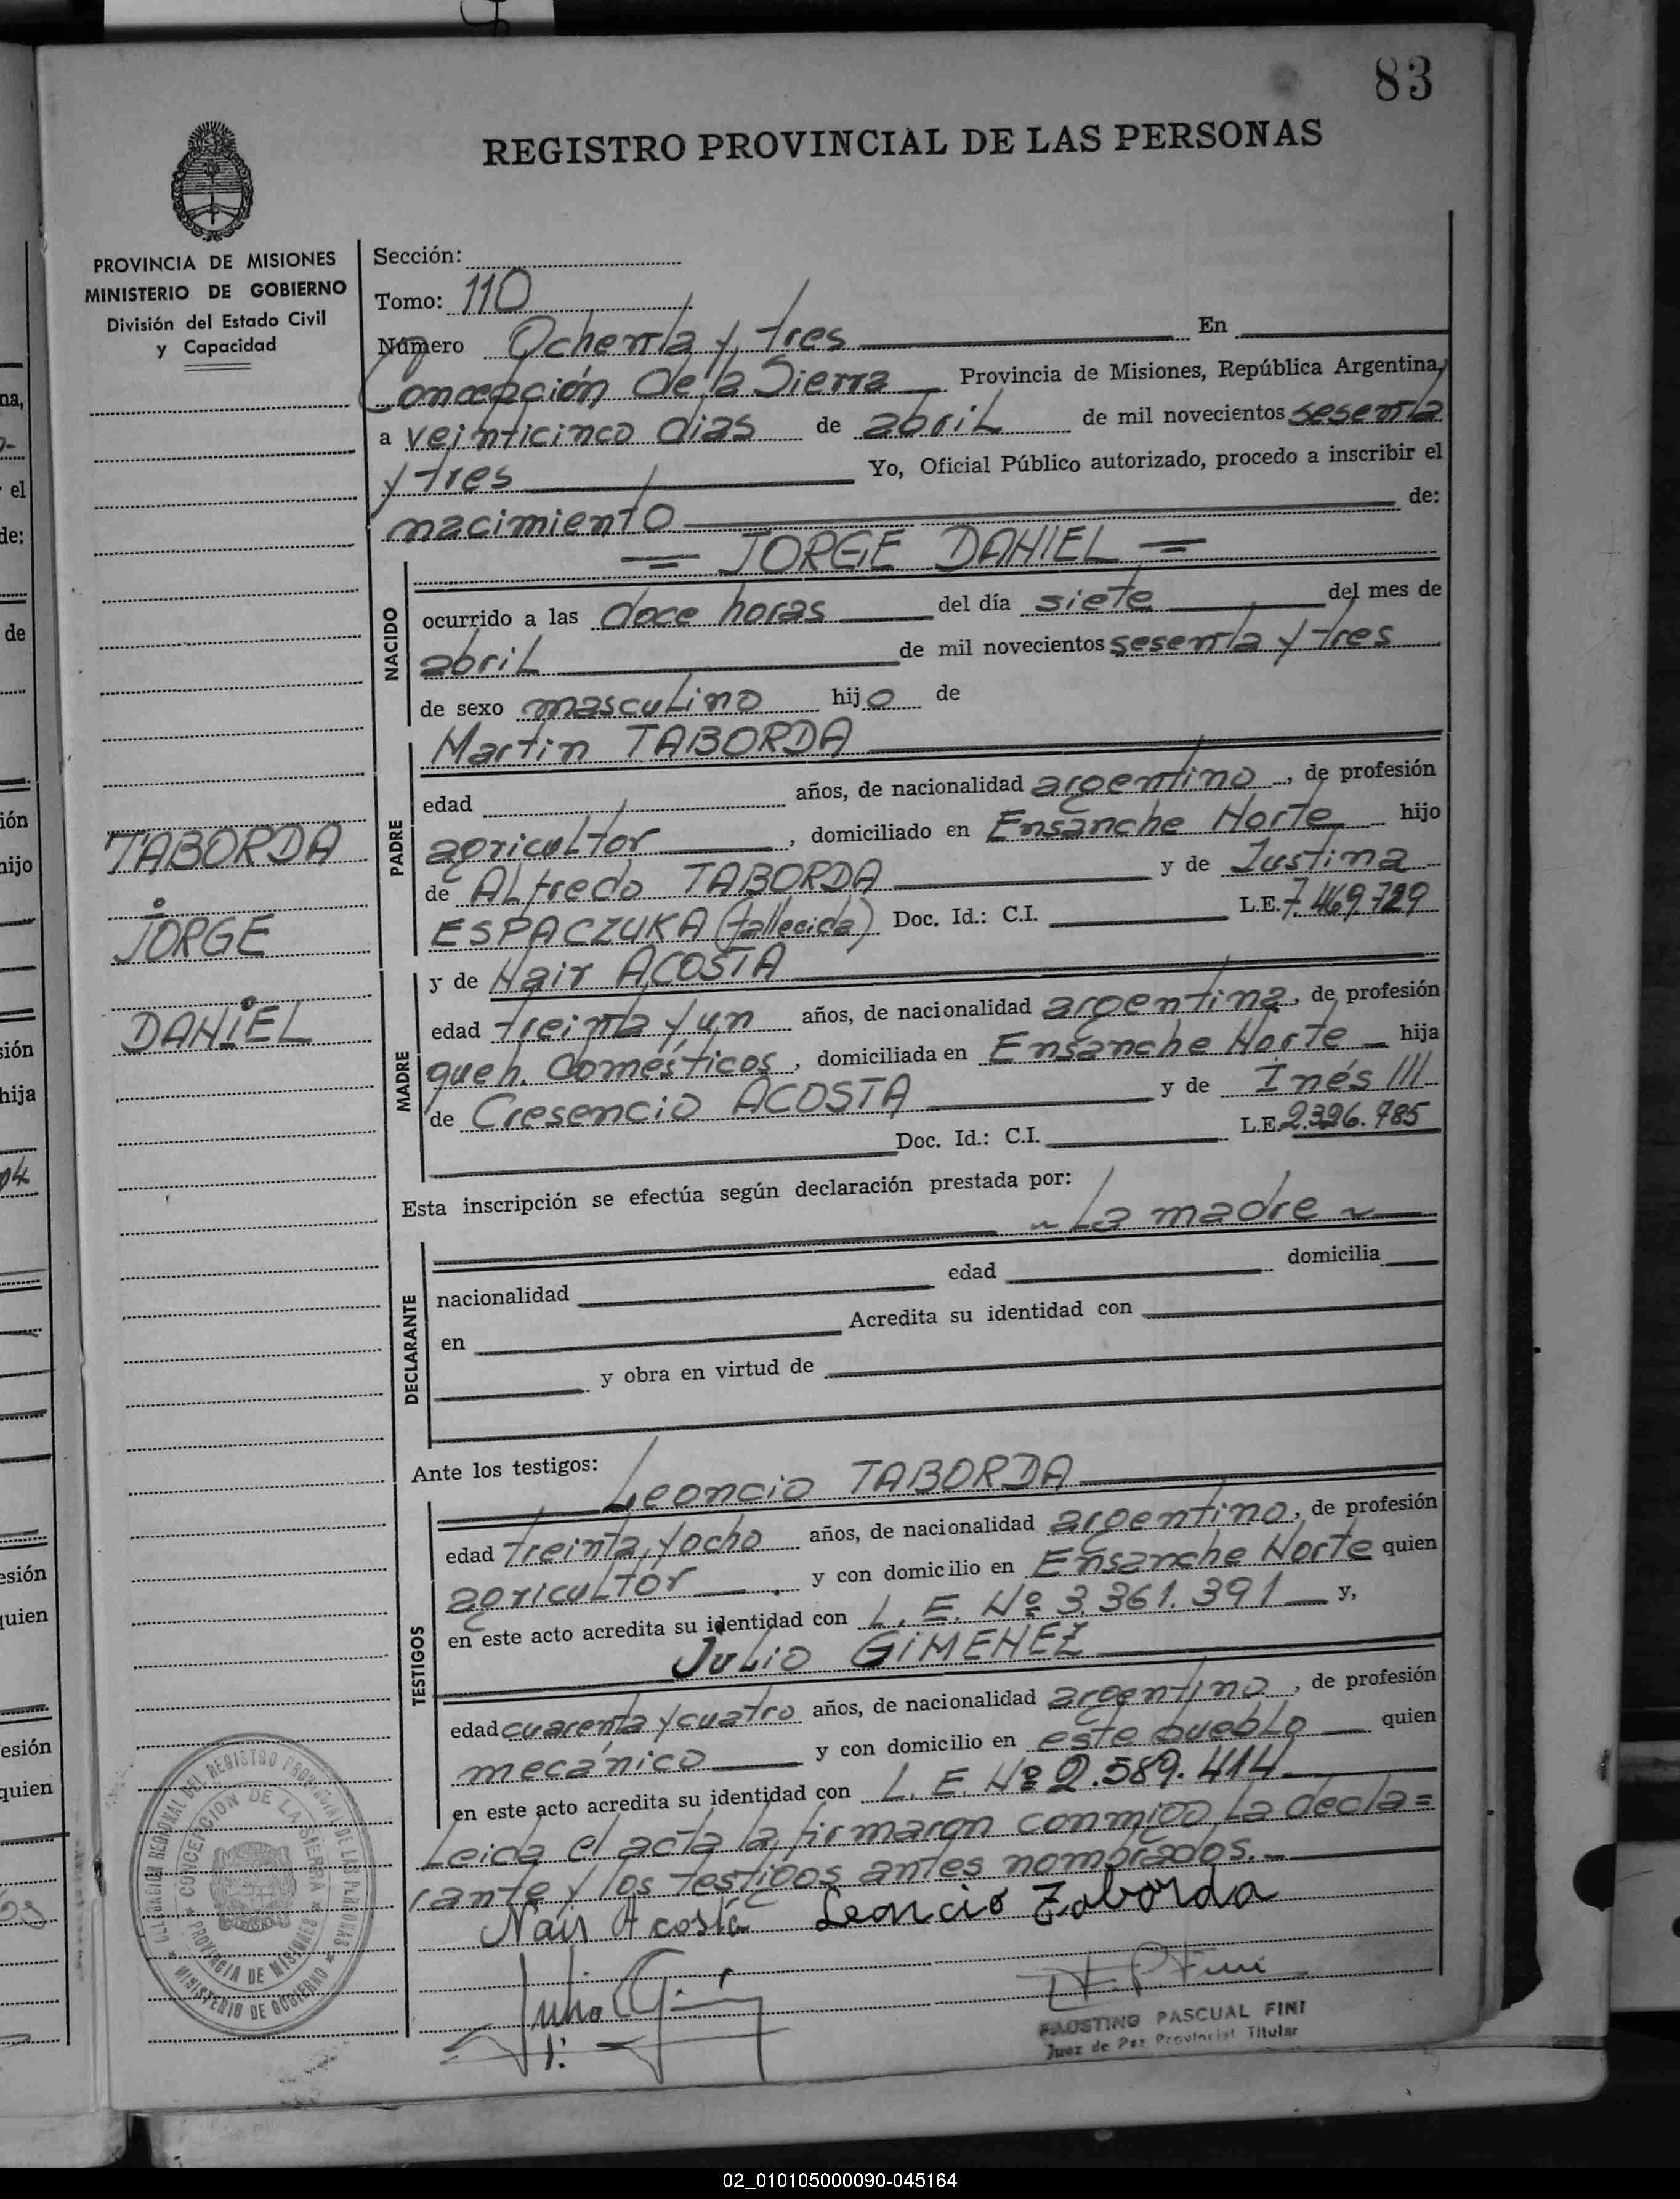 83
REGISTRO PROVINCIAL DE LAS PERSONAS
PROVINCIA DE MISIONES
MINISTERIO DE GOBIERNO
División del Estado Civil
y Capacidad
Sección:
Tomo: 110
Número Ochenta y tres En
Concepción de la Sierra Provincia de Misiones, República Argentina,
a veinticinco dias de abril de mil novecientos sesenta
y tres Yo, Oficial Público autorizado, procedo a inscribir el
nacimiento de:
= JORGE DANIEL =
NACIDO
ocurrido a las doce horas del día siete del mes de
abril de mil novecientos sesenta y tres
de sexo masculino hijo de
PADRE
Martin TABORDA
edad años, de nacionalidad argentino, de profesión
agricultor, domiciliado en Ensanche Norte hijo
de Alfredo TABORDA y de Justina
ESPACZUKA (fallecida) Doc. Id.: C.I. L.E. 7.469.729
TABORDA
JORGE
DANIEL
MADRE
y de Nair ACOSTA
edad treinta y un años, de nacionalidad argentina, de profesión
queh. domésticos, domiciliada en Ensanche Norte hija
de Cresencio ACOSTA y de Inés ///
Doc. Id.: C.I. L.E. 2.326.785
Esta inscripción se efectúa según declaración prestada por:
~ La madre ~
DECLARANTE
nacionalidad edad domicilia
en Acredita su identidad con
y obra en virtud de
Ante los testigos:
Leoncio TABORDA
TESTIGOS
edad treinta y ocho años, de nacionalidad argentino, de profesión
agricultor y con domicilio en Ensanche Norte quien
en este acto acredita su identidad con L. E. Nº 3.361.391 y,
Julio GIMENEZ
edad cuarenta y cuatro años, de nacionalidad argentino, de profesión
mecánico y con domicilio en este pueblo quien
en este acto acredita su identidad con L. E. Nº 2.589.414
Leida el acta la firmaron conmigo la decla=
rante y los testigos antes nombrados.-
Nair Acosta Leoncio Taborda
FAUSTINO PASCUAL FINI
Juez de Paz Provincial Titular
DELEGACIÓN REGIONAL DEL REGISTRO PROVINCIAL DE LAS PERSONAS
MINISTERIO DE GOBIERNO
CONCEPCIÓN DE LA SIERRA
PROVINCIA DE MISIONES
02_010105000090-045164